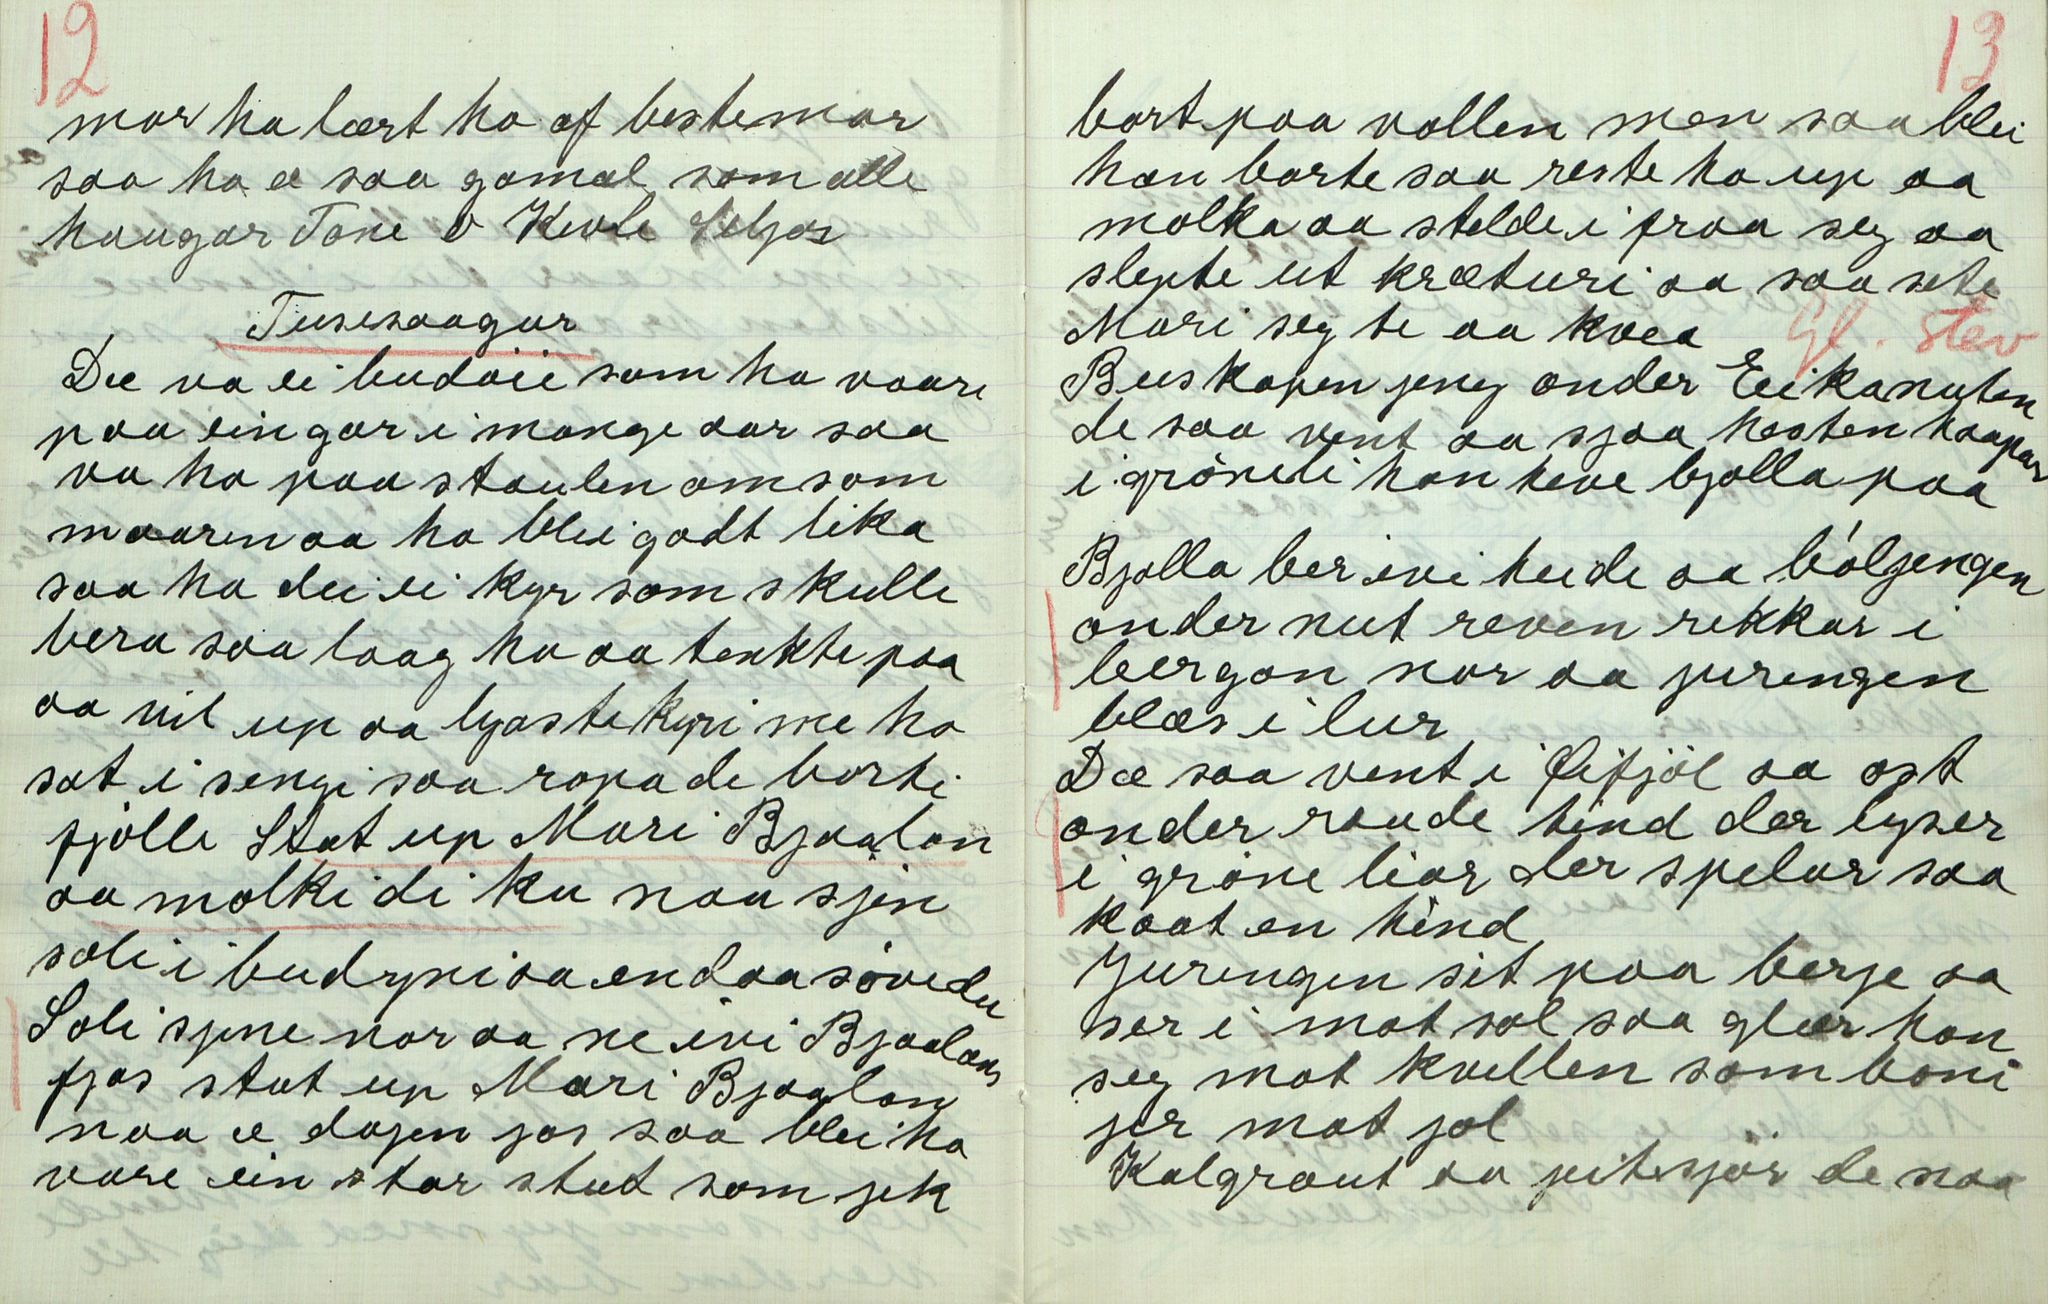 12
mor ha lært ho af bestemor
saa ho e saa gomol som alle
haugar Tone O Kevle
Tusesaagur
Dæ va ei budeie som ha vaare
paa ein gar i mange aar saa
va ho paa staulen om som
maaren aa ho blei godt lika
saa ha dei ei kyr som skulle
bera saa laag ho aa tenkte paa
aa vil up aa lyaste kyri me ho
sat i sengi saa ropa de borti
fjölle Stat up Mari Bjaalan
aa molki di ku naa sjin
soli i budyri aa endaa söve du
Soli sjine nor aa ne ivi Bjaalans
fjos stat up Mari Bjaalan
naa e dagen jos saa blei ho
vare ein stor stut som jek
13
bort paa vollen men saa blei
han borte saa reste ho up aa
molka aa stelde i fraa seg aa
slepte ut kræturi aa saa sete
Mari seg te aa kvea
Gl. stev
Buskapen jeng onder Eikanuten
de saa vent aa sjaa hesten haapar
i gröneli han heve bjolla paa
Bjolla ber ivi heide aa bóljengen
onder nut reven rekkar i
bergan nor aa jurengen
blæs i lur
Dæ saa vent i Fifjöl aa ost
onder raude tind der lyser
i gröne liar der spelar saa
kaat en hind
Jurengen sit paa berje aa
ser i mot sol saa glær han
seg mot kvellen som boni
jer mot jol
Kalgraut aa jeitesjör de naa